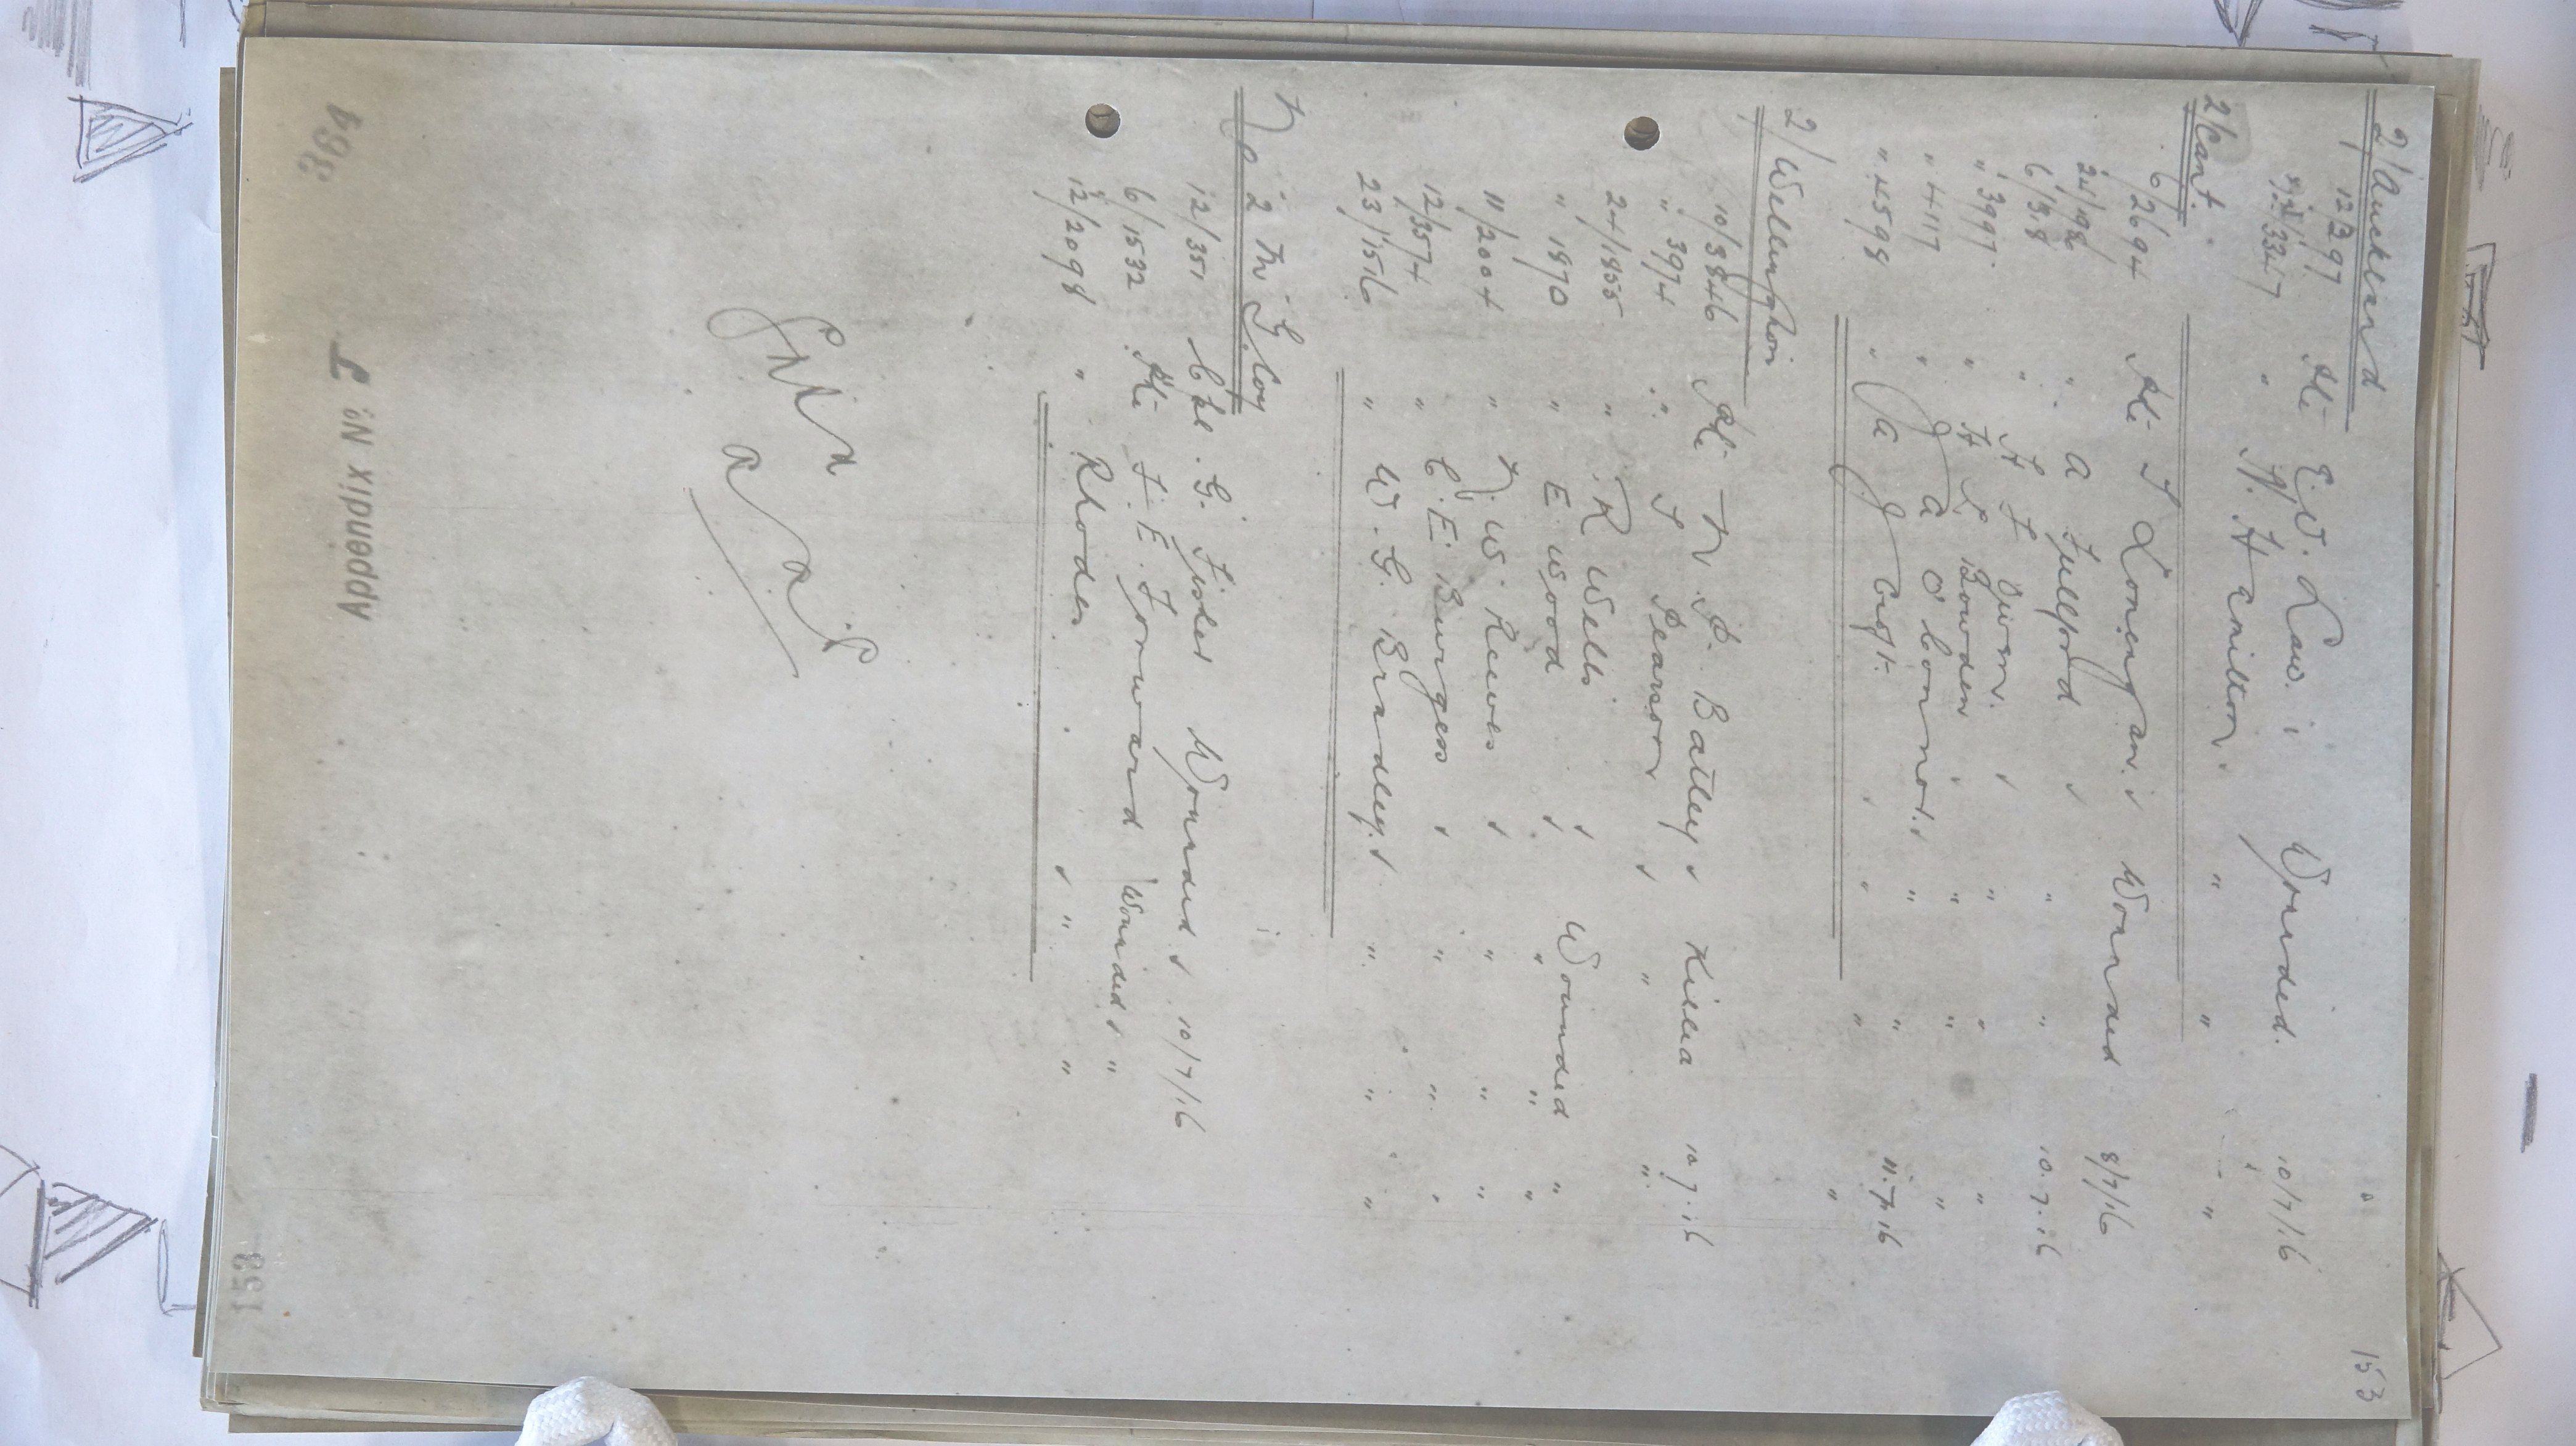 153
2/Auckland
12/297 Pte E. V. Law. Wounded. 10/7/16
3347 " N. Hamilton. " " "
2/Cant.
6/2694 Pte J Lonergan. Wounded 8/7/16
24/198 " A Fullford " " 10.7.16
6/318 " H F Owen. " "
" 3997 " H L Bowden " " "
" 4117 " J A O'Connor. " " 11.7.16
" 4598 " J A Cept. " " "
2/Wellington
10/3846 Pte N. P. Batley Killed 10.7.16
" 3974 " J Pearson " "
24/1855 " R Wells Wounded "
" 1870 " E Wood " " "
11/2004 " N. W. Reeves " " "
12/3574 " C. E. Burgess " " "
23/1516 " W. G. Bradley. " " "
No 2 M G Coy
12/351 Cpl. G. Fisher Wounded 10/7/16
6/1532 Pte F. E. Forward Wounded "
12/2098 " Rhodes " "
364
Appendix No. J
153